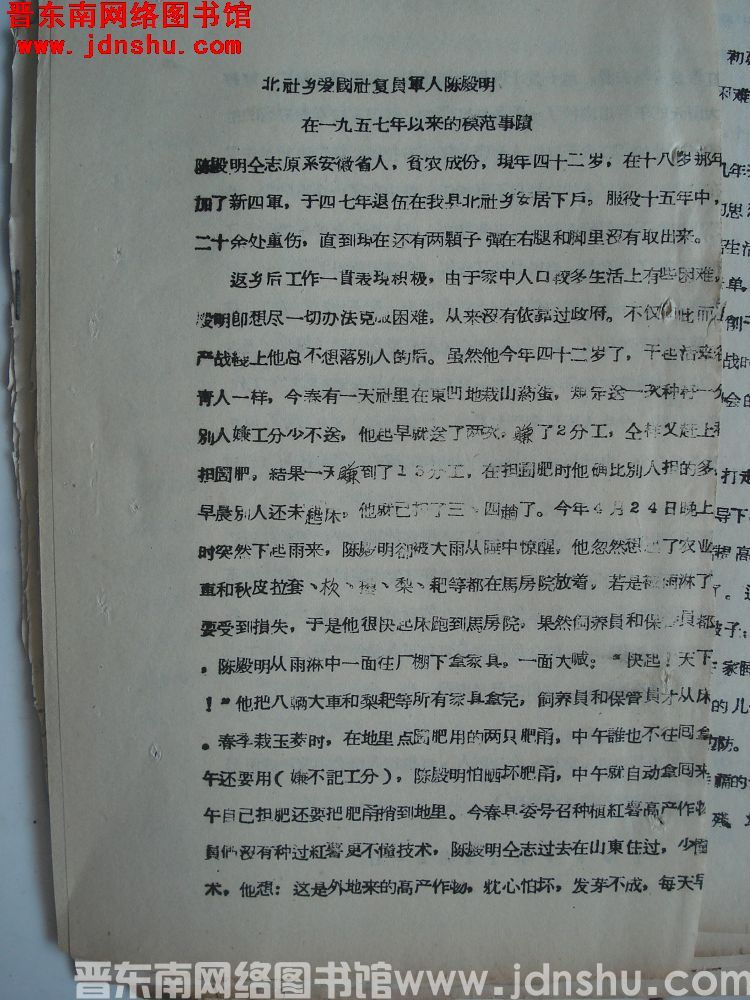 晋东南网络图书馆
www.jdnshu.com
北社乡爱國社复員軍人陈殿明
在一九五七年以来的模范事蹟
陈殿明仝志原系安徽省人，贫农成份，現年四十二岁，在十八岁那年
加了新四軍，于四七年退伍在我县北社乡安居下戶，服役十五年中，
二十余处重伤，直到現在还有两顆子弹在右腿和脚里沒有取出来。
返乡后工作一貫表現积极，由于家中人口較多生活上有些困难，
殿明即想尽一切办法克服困难，从来沒有依靠过政府。不仅如此而
产战綫上他总不想落別人的后。虽然他今年四十二岁了，干起活来
青人一样，今春有一天社里在東凹地栽山葯蛋，規定送一次种籽一分
別人嫌工分少不送，他起早就送了两次，賺了2分工，仝样又赶上
担圊肥，結果一天賺到了13分工，在担圊肥时他确比別人担的多
早晨別人还未起床，他就已担了三、四趟了。今年4月24日晚上
时突然下起雨来，陈殿明卻被大雨从睡中惊醒，他忽然想起了农业
車和秋皮拉套、杴、耧、犁、耙等都在馬房院放着，若是被雨淋了
要受到損失，于是他很快起床跑到馬房院，果然飼养員和保管員都
。陈殿明从雨淋中一面往厂棚下拿家具。一面大喊："快起！天下
！"他把八輛大車和犁耙等所有家具拿完，飼养員和保管員才从床
。春季栽玉茭时，在地里点圊肥用的两只肥甬，中午誰也不往囘拿
午还要用（嫌不記工分），陈殿明怕晒坏肥甬，中午就自动拿囘来
午自己担肥还要把肥甬捎到地里。今春县委号召种植紅薯高产作物
員們沒有种过紅薯更不懂技术，陈殿明仝志过去在山東住过，少
术，他想：这是外地来的高产作物，躭心怕坏，发芽不成，每天早
晋东南网络图书馆www.jdnshu.com